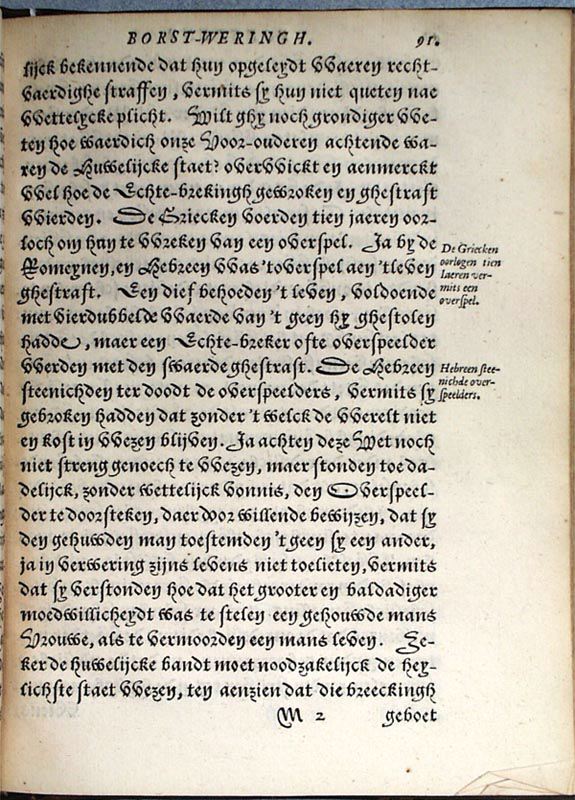 BORST-WERINGH. 91.
lijck bekennende dat hun opgeleydt VVaeren recht-
vaerdighe straffen, vermits sy hun niet queten nae
VVettelycke plicht. Wilt ghy noch grondiger VVe-
ten hoe waerdich onze Voor-ouderen achtende wa-
ren de Huwelijcke staet? overVVickt en aenmerckt
VVel hoe de Echte-brekingh gewroken en ghestraft
VVierden. De Griecken voerden tien jaeren oor-
loch om hun te VVreken van een overspel. Ja by de
Romeynen, en Hebreen VVas 'toverspel aen 'tleven
ghestraft. Een dief behoeden 't leven, voldoende
met vierdubbelde VVaerde van 't geen hy ghestolen
hadde, maer een Echte-breker ofte overspeelder
VVerden met den swaerde ghestraft. De Hebreen
steenichden ter doodt de overspeelders, vermits sy
gebroken hadden dat zonder 't welck de VVerelt niet
en kost in VVezen blijven. Ja achten deze Wet noch
niet streng genoech te VVezen, maer stonden toe da-
delijck, zonder wettelijck vonnis, den Overspeel-
der te doorsteken, daer voor willende bewijzen, dat sy
den gehuwden man toestemden 't geen sy een ander,
ja in verwering zijns levens niet toelieten, vermits
dat sy verstonden hoe dat het grooter en baldadiger
moedwillicheydt was te stelen een gehouwde mans
Vrouwe, als te vermoorden een mans leven. Ze-
ker de huwelijcke bandt moet noodzakelijck de hey-
lichste staet VVezen, ten aenzien dat die breeckingh
M 2 geboet
De Griecken
oorlogen tien
Iaeren ver-
mits een
overspel.
Hebreen stee-
nichde over-
speelders.